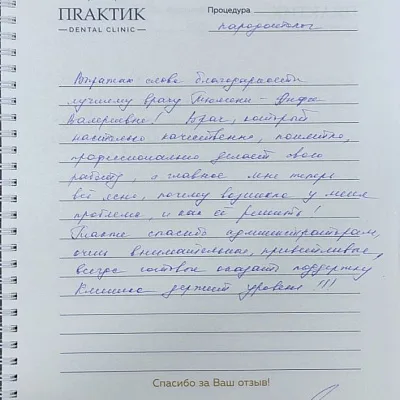 ПRАКТИК
— DENTAL CLINIC —
Процедура
пародонтолог
Выражаю слова благодарности
лучшему врачу Тюмени -
Валерьевне! Врач, который
настолько качественно, понятно,
профессионально делает свою
работу, а главное мне теперь
всё ясно, почему возникла у меня
проблема, и как её решить!
Также спасибо администраторам,
очень внимательные, приветливые,
всегда готовые оказать поддержку
Клиника держит уровень!!!
Спасибо за Ваш отзыв!